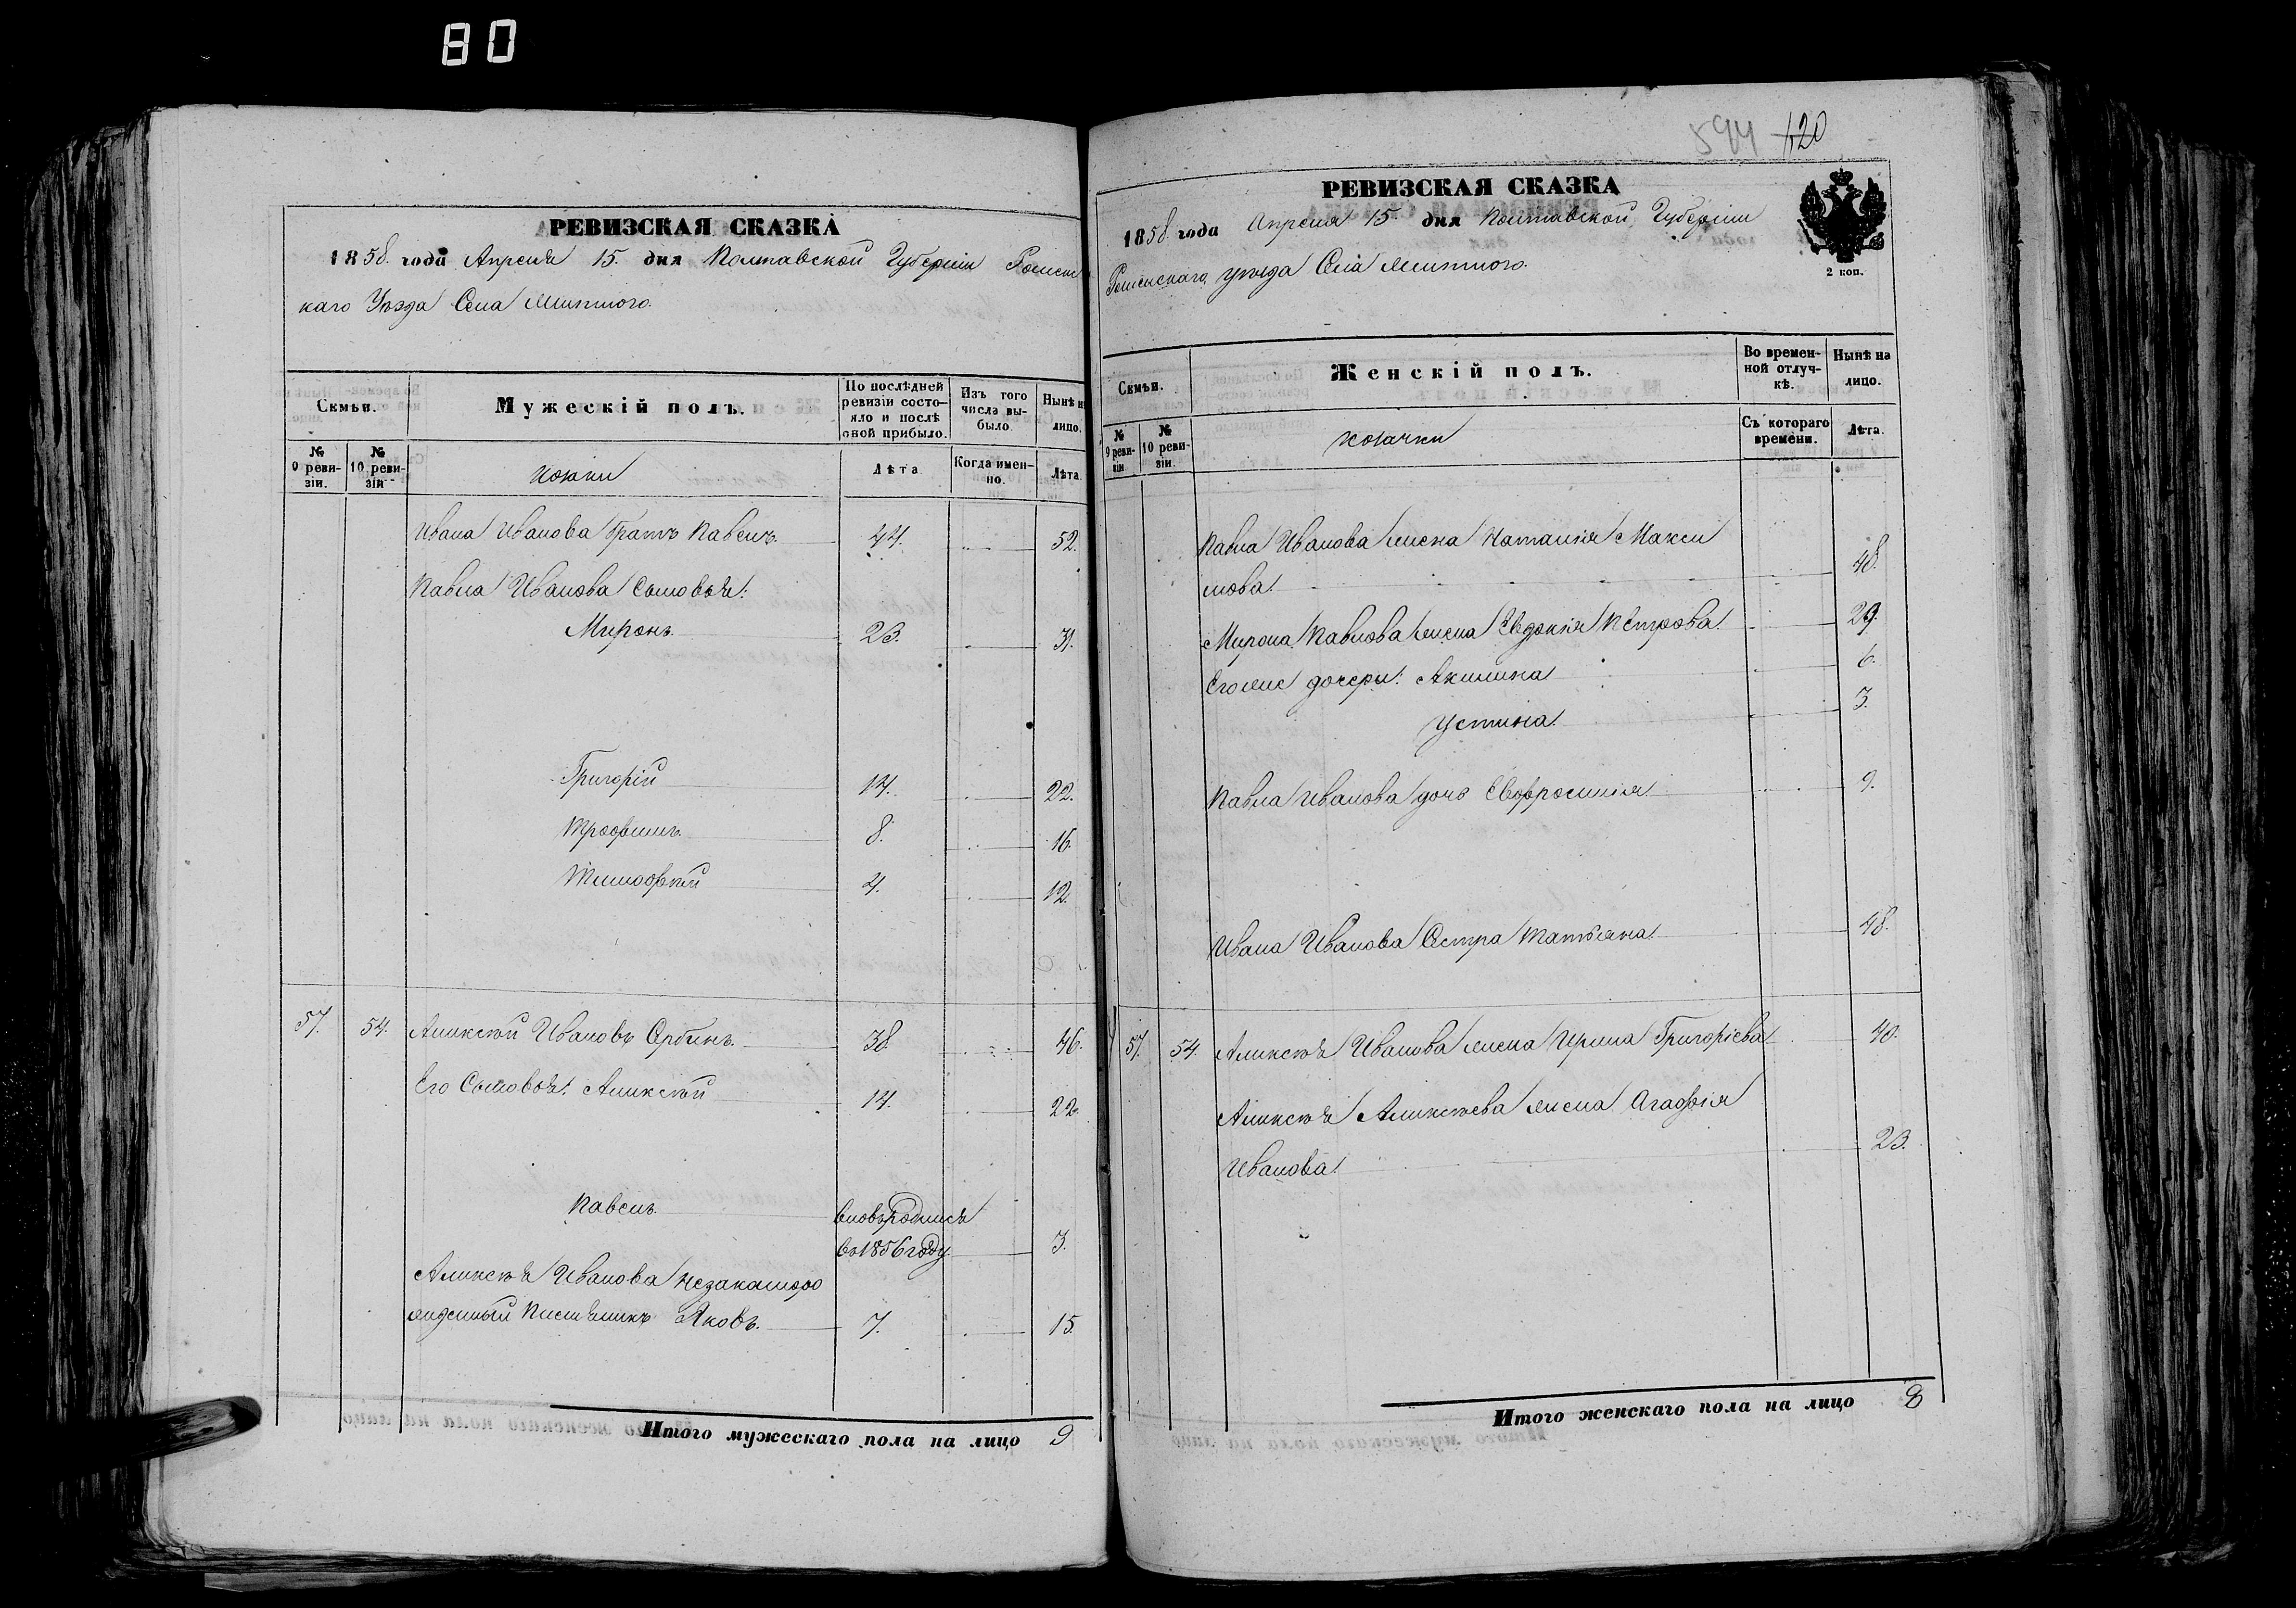 80
РЕВИЗСКАЯ СКАЗКА
1858. года Апреля 15. дня Полтавской Губерніи Роменс
каго Уѣзда Села
Семьи.
Мужескій полъ.
По послѣдней ревизіи состояло и послѣ оной прибыло.
Изъ того числа выбыло
Нынѣ н лицо.
№ 9 ревизіи.
№ 10 ревизіи
Лѣта
Когда именно.
Лѣта.
Ивана Иванова братъ Павелъ 44. 52.
Павла Иванова Сыновья:
Миронъ 23. 31.
Григорій 14. 22.
Трофимъ 8. 16.
Тимофѣй 4. 12.
57. 54. Алексѣй Ивановъ Сербинъ 38. 46.
Его Сыновья: Алексѣй 14. 22.
Павелъ вновьродился
во 1856 году 3.
Алексѣя Иванова незаконоро
жденный Яковъ. 7. 15.
Итого мужескаго пола на лицо 9
594 120
РЕВИЗСКАЯ СКАЗКА
1858. года Апреля 15. дня Полтавской Губерніи
Роменскаго уѣзда Села
2 коп.
Семьи.
Женскій полъ.
Во временной отлучкѣ.
Нынѣ на лицо.
№ 9 ревизіи
№ 10 ревизіи.
козачки
Съ котораго времени.
Лѣта.
Павла Иванова жена Наталія Макси
мова 48.
Мирона Павлова жена Евдокія Петрова 29.
Его же дочери: Акилина 6.
Устина 3.
Павла Иванова дочь Евфросинія 9.
Ивана Иванова Сестра Татьяна 48.
57. 54. Алексѣя Иванова жена Ирина Григоріева 40.
Алексѣя Алексѣева жена Агафія
Иванова 23.
Итого женскаго пола на лицо 8